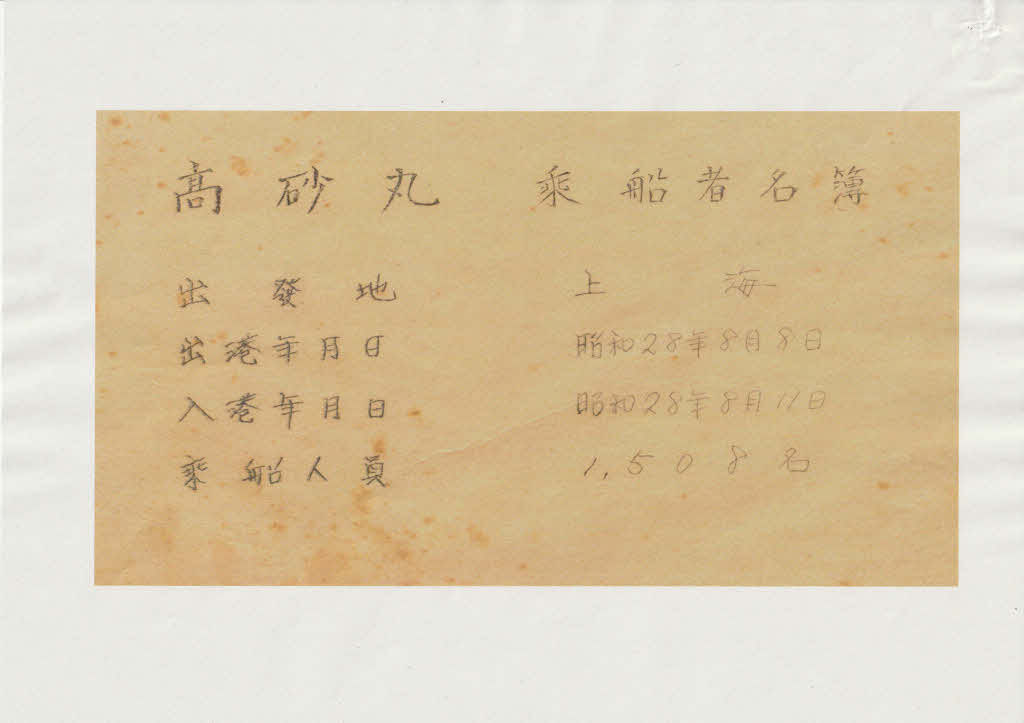 高砂丸 乗船者名簿
出發地 上海
出港年月日 昭和28年8月8日
入港年月日 昭和28年8月11日
乗船人員 1,508名